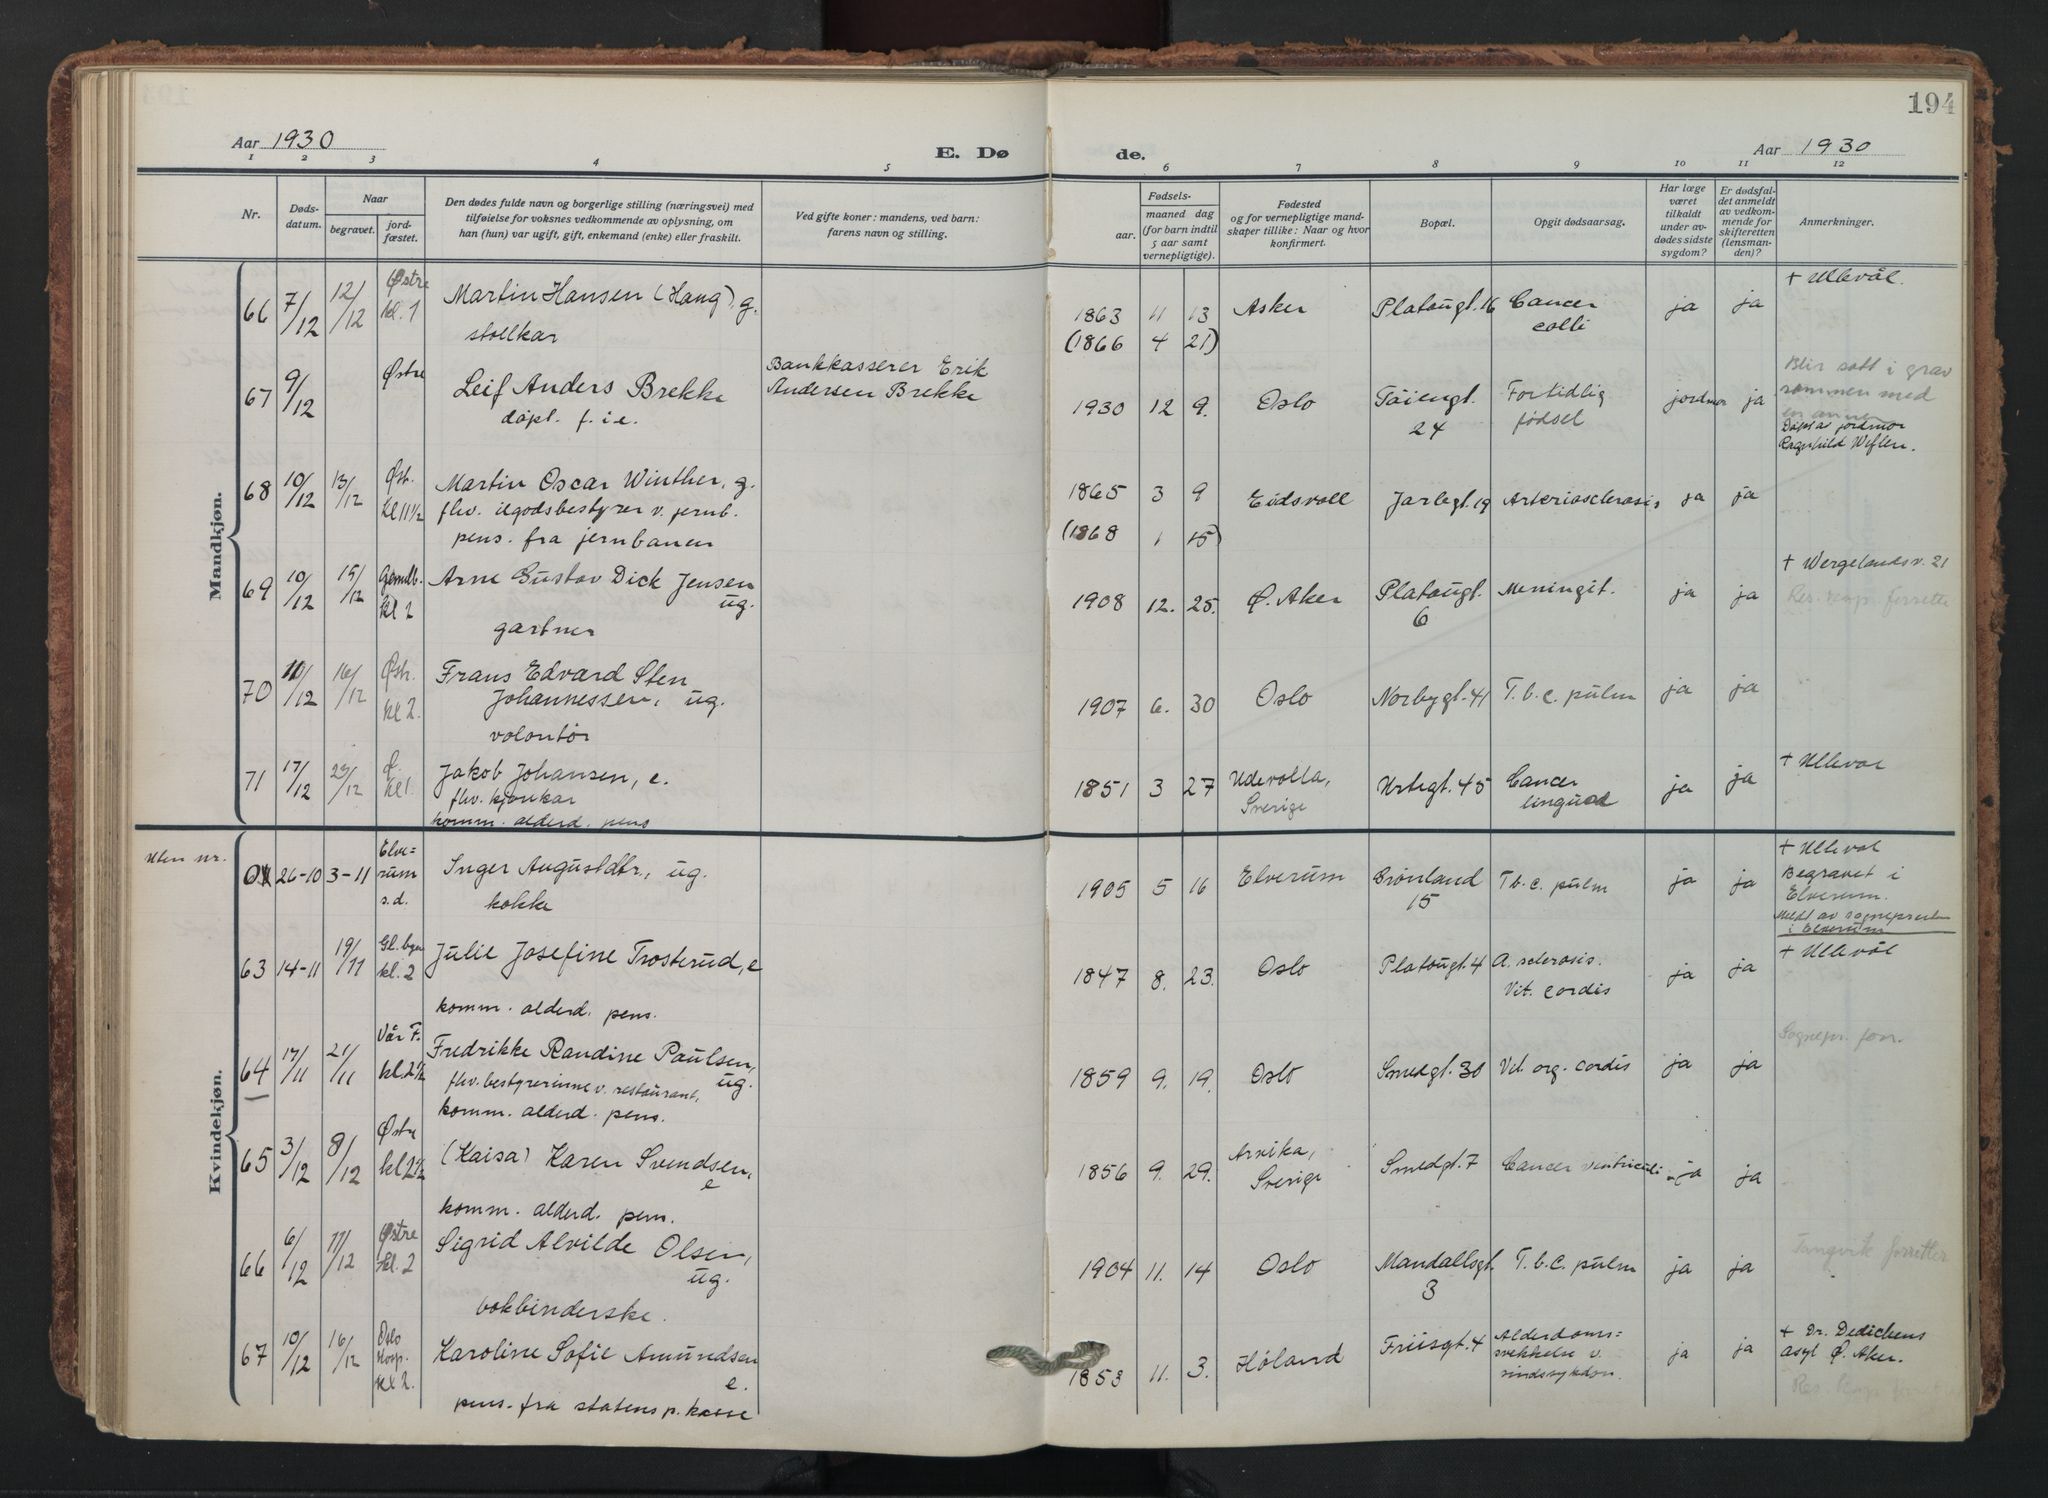 194
Aar 1930
E. Dø
de.
Aar 1930
1 2 3 4 5 6 7 8 9 10 11 12
Nr.
Døds-
datum.
Naar
begravet.
jord-
fæstet.
Den dødes fulde navn og borgerlige stilling (næringsvei) med
tilføielse for voksnes vedkommende av oplysning, om
han (hun) var ugift, gift, enkemand (enke) eller fraskilt.
Ved gifte koner: mandens, ved barn:
farens navn og stilling.
Fødsels-
aar.
maaned dag
(for barn indtil
5 aar samt
vernepligtige).
Fødested
og for vernepligtige mand-
skaper tillike: Naar og hvor
konfirmert.
Bopæl.
Opgit dødsaarsag.
Har læge
været
tilkaldt
under av-
dødes sidste
sygdom?
Er dødsfal-
det anmeldt
av vedkom-
mende for
skifteretten
(lensman-
den)?
Anmerkninger.
Mandkjøn.
66 7/12 12/12 Østre kl. 1 Martin Hansen (Haug), g. 1863 11 13 Asker Platougt. 16 Cancer ja ja + Ullevål.
stallkar (1866 4 21) colli
67 9/12 Østre Leif Anders Brekke Bankkasserer Erik 1930 12 9. Oslo Tøiengt. Fortidlig jordmor ja Blir satt i grav
døpt. f. i e. Andersen Brekke 24 fødsel sammen med
en annen
Døpt av jordmor
Ragnhild Weflen.
68 10/12 13/12 Østr. kl 11 1/2 Martin Oscar Winther, g. 1865 3 9 Eidsvoll Jarlegt. 19 Arteriosclerosis ja ja
fhv. ilgodsbestyrer v. jernb. (1868 1 15)
pens. fra jernbanen
69 10/12 15/12 kl 2 Arne Gustav Dick Jensen 1908 12. 25. Ø. Aker Platougt. Meningit. ja ja + Wergelandsv. 21
ug. 6 Res. kap. forrette
gartner
70 10/12 16/12 Østr. kl 2. Frans Edvard Sten 1907 6. 30 Oslo Norbygt. 41 T.b.c. pulm ja ja
Johannessen, ug.
volontør
71 17/12 23/12 Ø. kl 1. Jakob Johansen, e. 1851 3 27 Udevolla, Urtegt. 45 Cancer ja ja + Ullevål
fhv. kjørekar Sverige linguae
komm. alderd. pens
Kvindekjøn.
Uten nr. 26-10 3-11 Elve=
rum
s.d. Inger Augustdtr., ug. 1905 5 16 Elverum Grønland T.b.c. pulm ja ja + Ullevål
kokke 15 Begravet i
Elverum.
Meldt av sognepresten
i Elverum
63 14-11 19/11 Gl. byen kl. 2 Julie Josefine Trosterud, e 1847 8. 23. Oslo Platougt. 4 A. sclerosis. ja ja + Ullevål
komm. alderd. pens. Vit. cordis
64 17/11 21/11 Vår F. kl. 2 1/2 Fredrikke Randine Paulsen, 1859 9. 19. Oslo Smedgt. 30 Vit. org. cordis ja ja Sognepr. forr.
fhv. bestyrerinne v. restaurant, ug.
komm. alderd. pens.
65 3/12 8/12 Østre kl 2 1/2 (Kaisa) Karen Svendsen, 1856 9. 29. Arvika, Smedgt. 7 Cancer ventriculi ja ja
e Sverige
komm. alderd. pens.
66 6/12 11/12 Østre kl. 2 Sigrid Alvilde Olsen, 1904 11. 14 Oslo Mandallsgt. T.b.c. pulm ja ja Tangvik forretter
ug. 3
bokbinderske.
67 10/12 16/12 Oslo
Hosp.
kl 2. Karoline Sofie Amundsen 1853 11. 3. Høland Friisgt. 4 Alderdoms= ja ja + Dr. Dedichens
e. svekkelse v. asyl Ø. Aker.
pens. fra statens p. kasse sindssykdom. Res. kap.